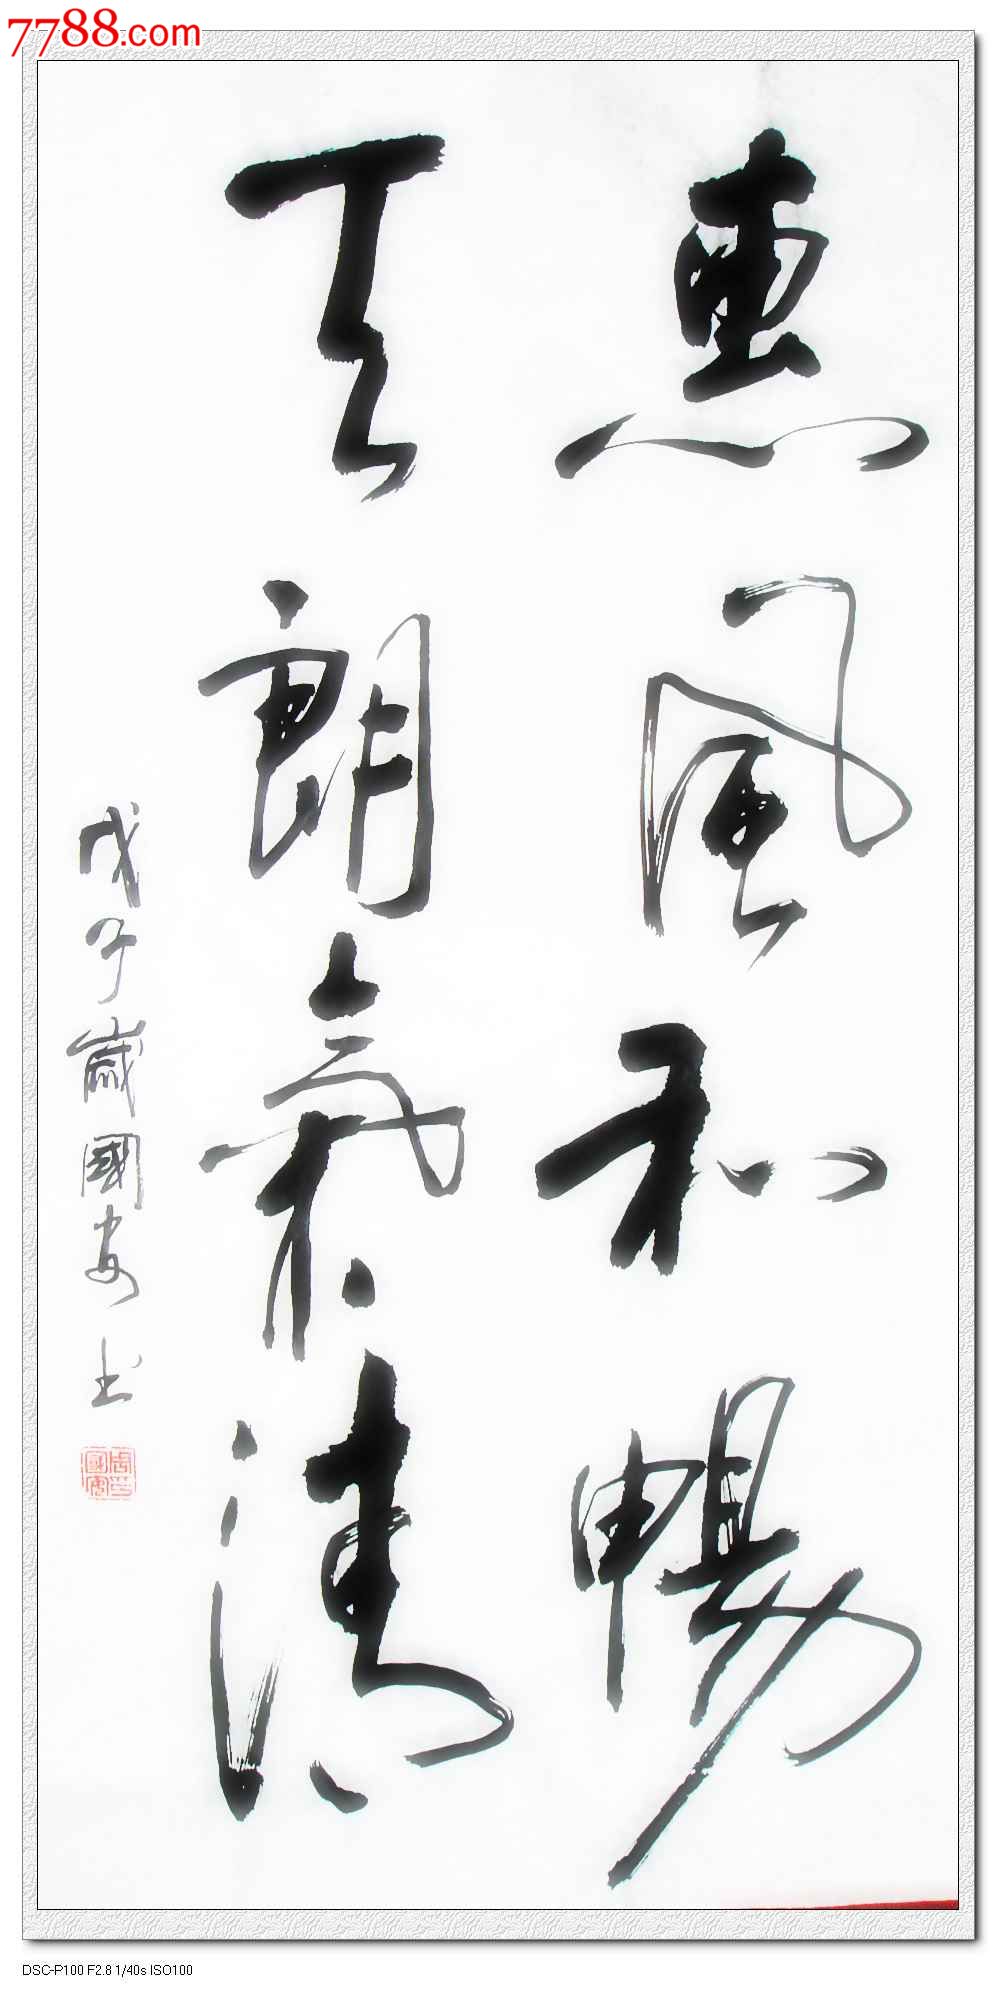 7788.com
惠風和暢
天朗氣清
戊子歲國安书
DSC-P100 F2.8 1/40s ISO100